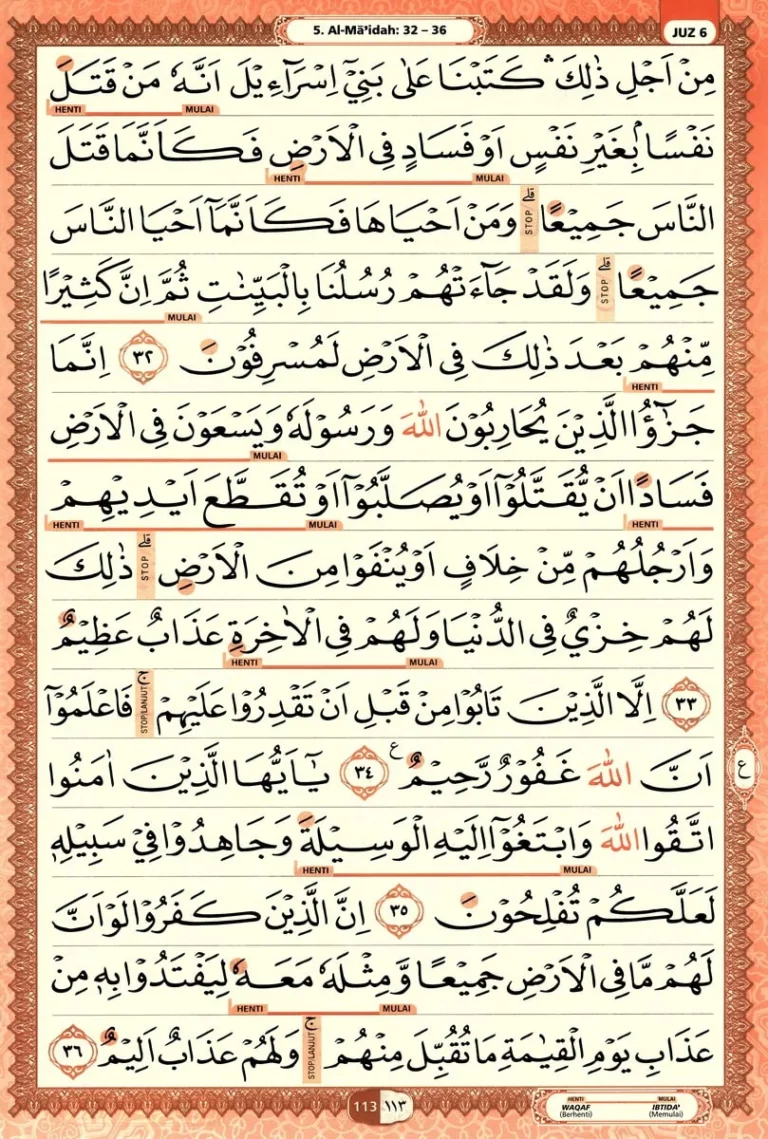 5. Al-Mā'idah: 32 – 36
JUZ 6
مِنْ اَجْلِ ذٰلِكَ ۛ كَتَبْنَا عَلٰى بَنِيْٓ اِسْرَاۤءِيْلَ اَنَّهٗ مَنْ قَتَلَ
HENTI MULAI
نَفْسًاۢ بِغَيْرِ نَفْسٍ اَوْ فَسَادٍ فِى الْاَرْضِ فَكَاَنَّمَا قَتَلَ
HENTI MULAI
النَّاسَ جَمِيْعًا ۗ وَمَنْ اَحْيَاهَا فَكَاَنَّمَآ اَحْيَا النَّاسَ
STOP
جَمِيْعًا ۗ وَلَقَدْ جَاۤءَتْهُمْ رُسُلُنَا بِالْبَيِّنٰتِ ثُمَّ اِنَّ كَثِيْرًا
STOP
MULAI
مِّنْهُمْ بَعْدَ ذٰلِكَ فِى الْاَرْضِ لَمُسْرِفُوْنَ ٣٢ اِنَّمَا
HENTI
جَزٰۤؤُا الَّذِيْنَ يُحَارِبُوْنَ اللّٰهَ وَرَسُوْلَهٗ وَيَسْعَوْنَ فِى الْاَرْضِ
MULAI
فَسَادًا اَنْ يُّقَتَّلُوْٓا اَوْ يُصَلَّبُوْٓا اَوْ تُقَطَّعَ اَيْدِيْهِمْ
HENTI MULAI HENTI
وَاَرْجُلُهُمْ مِّنْ خِلَافٍ اَوْ يُنْفَوْا مِنَ الْاَرْضِ ۗ ذٰلِكَ
STOP
لَهُمْ خِزْيٌ فِى الدُّنْيَا وَلَهُمْ فِى الْاٰخِرَةِ عَذَابٌ عَظِيْمٌ
HENTI MULAI
٣٣ اِلَّا الَّذِيْنَ تَابُوْا مِنْ قَبْلِ اَنْ تَقْدِرُوْا عَلَيْهِمْ ۚ فَاعْلَمُوْٓا
STOP/LANJUT
اَنَّ اللّٰهَ غَفُوْرٌ رَّحِيْمٌ ࣖ ٣٤ يٰٓاَيُّهَا الَّذِيْنَ اٰمَنُوا
ع
اتَّقُوا اللّٰهَ وَابْتَغُوْٓا اِلَيْهِ الْوَسِيْلَةَ وَجَاهِدُوْا فِيْ سَبِيْلِهٖ
HENTI MULAI
لَعَلَّكُمْ تُفْلِحُوْنَ ٣٥ اِنَّ الَّذِيْنَ كَفَرُوْا لَوْ اَنَّ
لَهُمْ مَّا فِى الْاَرْضِ جَمِيْعًا وَّمِثْلَهٗ مَعَهٗ لِيَفْتَدُوْا بِهٖ مِنْ
HENTI MULAI
عَذَابِ يَوْمِ الْقِيٰمَةِ مَا تُقُبِّلَ مِنْهُمْ ۚ وَلَهُمْ عَذَابٌ اَلِيْمٌ ٣٦
STOP/LANJUT
113 ١١٣
HENTI MULAI
WAQAF IBTIDA'
(Berhenti) (Memulai)